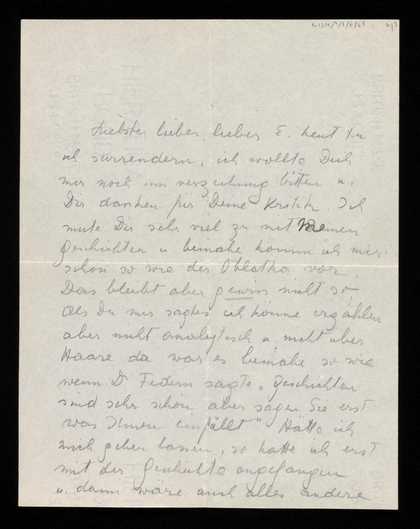 Liebster lieber, lieber E. heut tu
ich surrendern, ich wollte Dich
nur noch um verzeihung bitten u.
Dir danken für Deine Kritik. Ich
mute Dir sehr viel zu mit meinen
geschichten u beinahe komm ich mir
schon so wie der vor.
Das bleibt aber gewiss nicht so,
als Du mir sagtest ich könne erzählen
aber nicht analytisch u nicht über
Haare da war es beinahe so wie
wenn Dr Federn sagte „Geschichten
sind sehr schön aber sagen Sie erst
was Ihnen einfällt" Hätte ich
mich gehen lassen, so hätte ich erst
mit der Geschichte angefangen
u. dann wäre auch alles andere